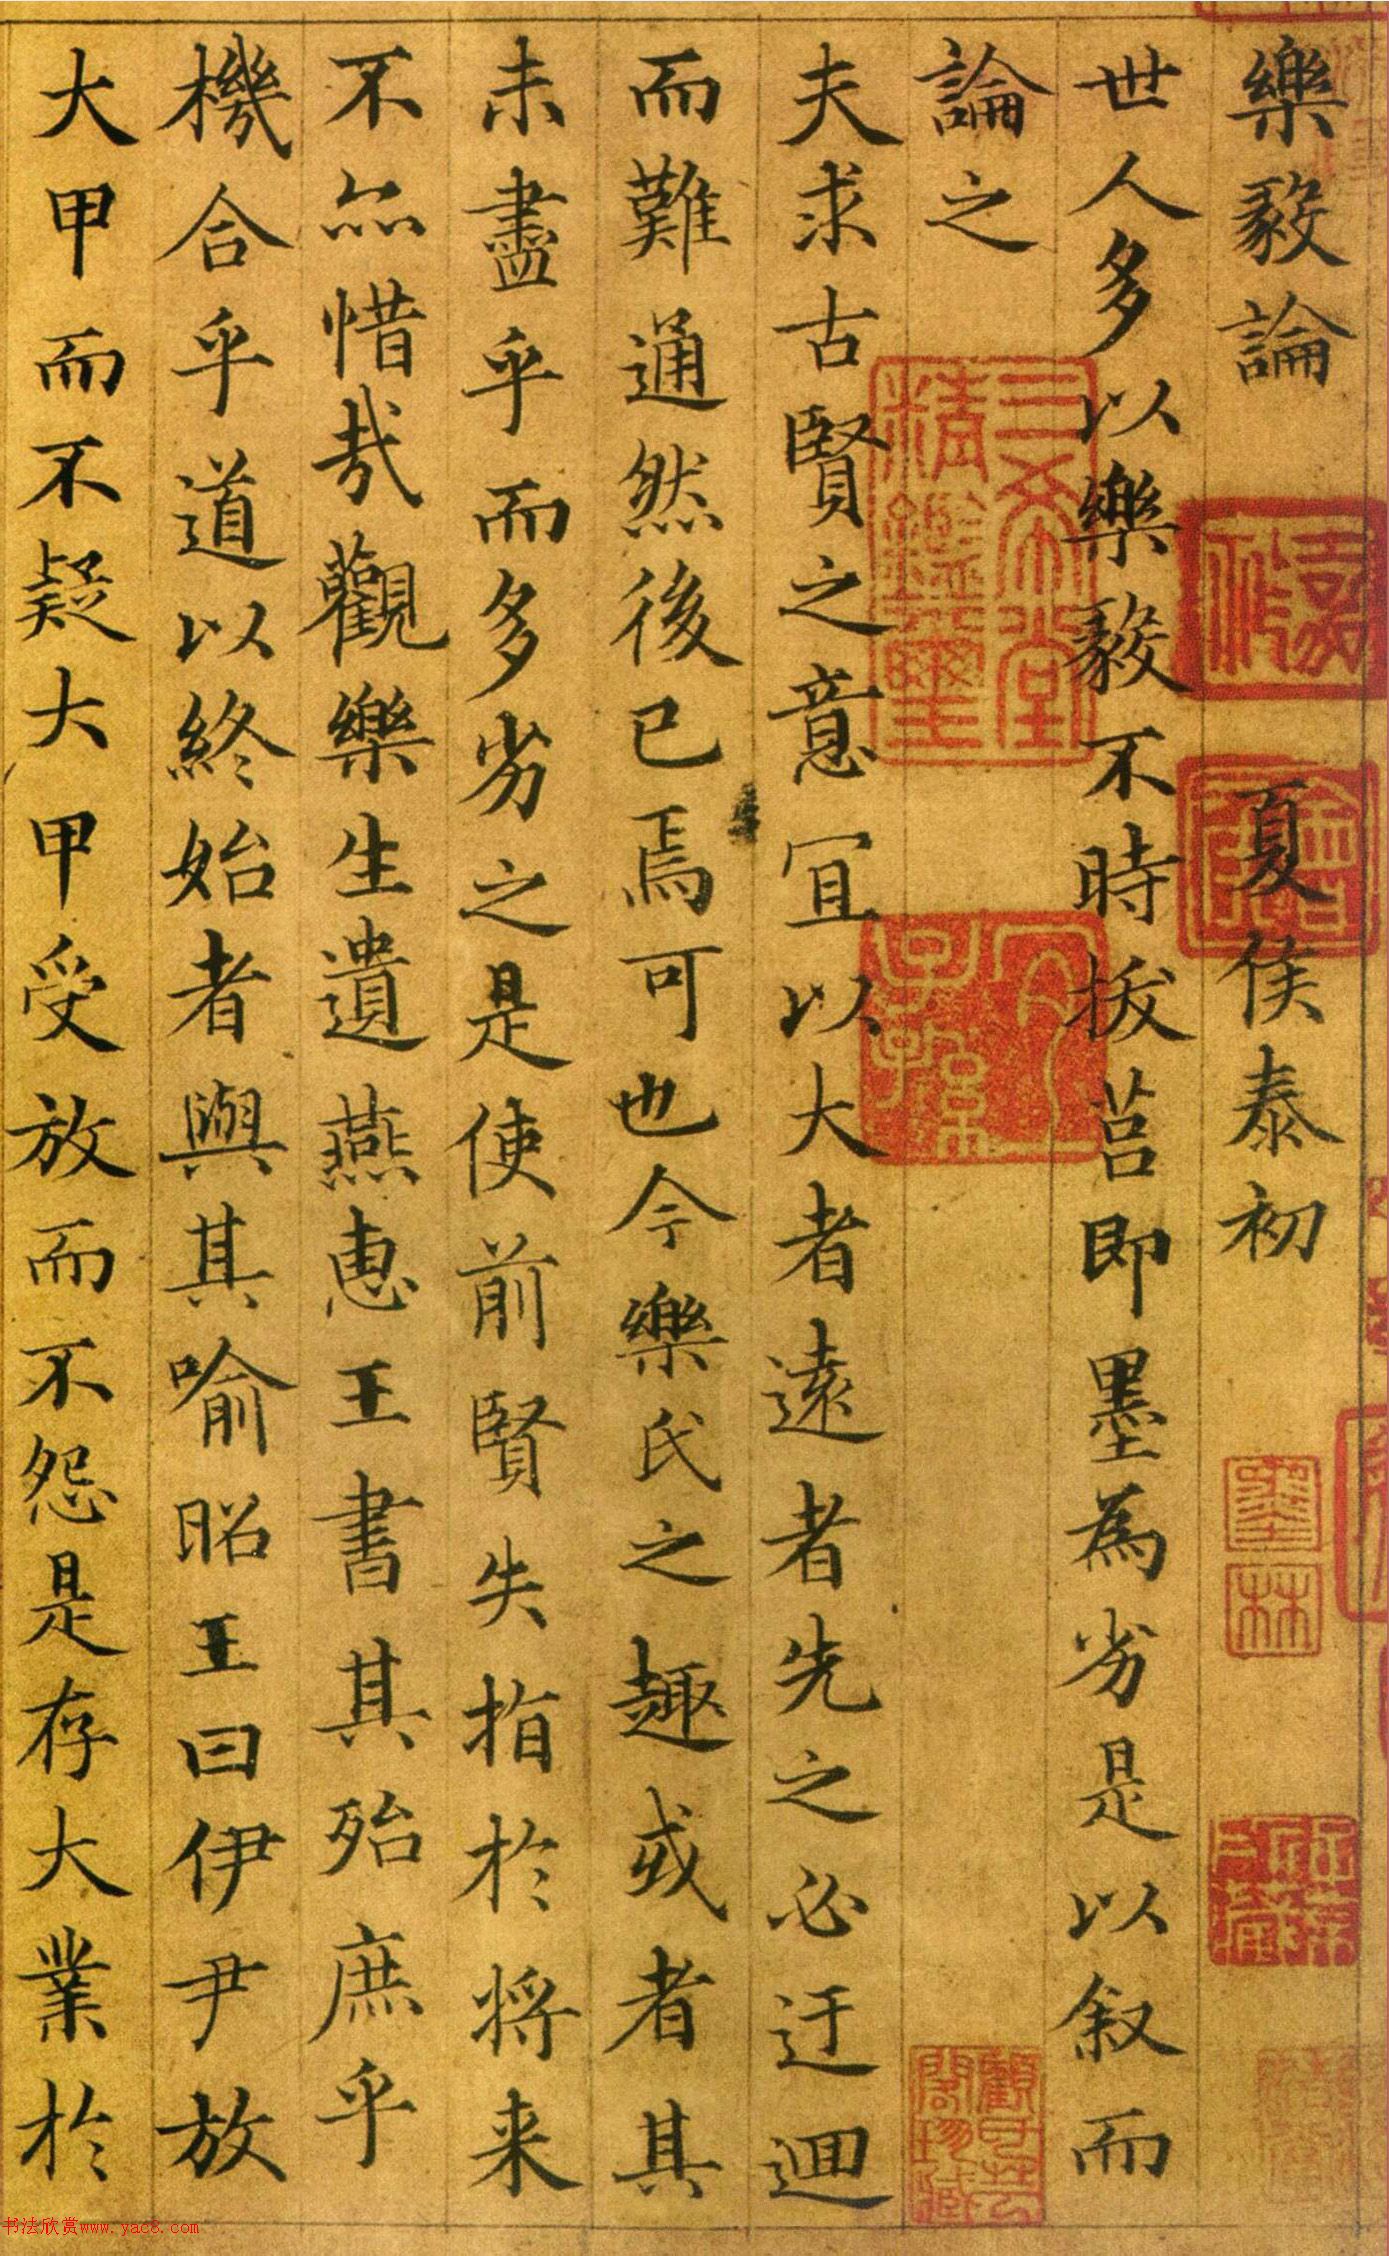 樂毅論 夏侯泰初
世人多以樂毅不時拔莒即墨為劣是以敘而
論之
夫求古賢之意宜以大者遠者先之必迂迴
而難通然後已焉可也今樂氏之趣或者其
未盡乎而多劣之是使前賢失指於将来
不亦惜哉觀樂生遺燕惠王書其殆庶乎
機合乎道以終始者與其喻昭王曰伊尹放
大甲而不疑大甲受放而不怨是存大業於
三希堂精鑑璽
宜子孫
墨林
书法欣赏www.yac8.com